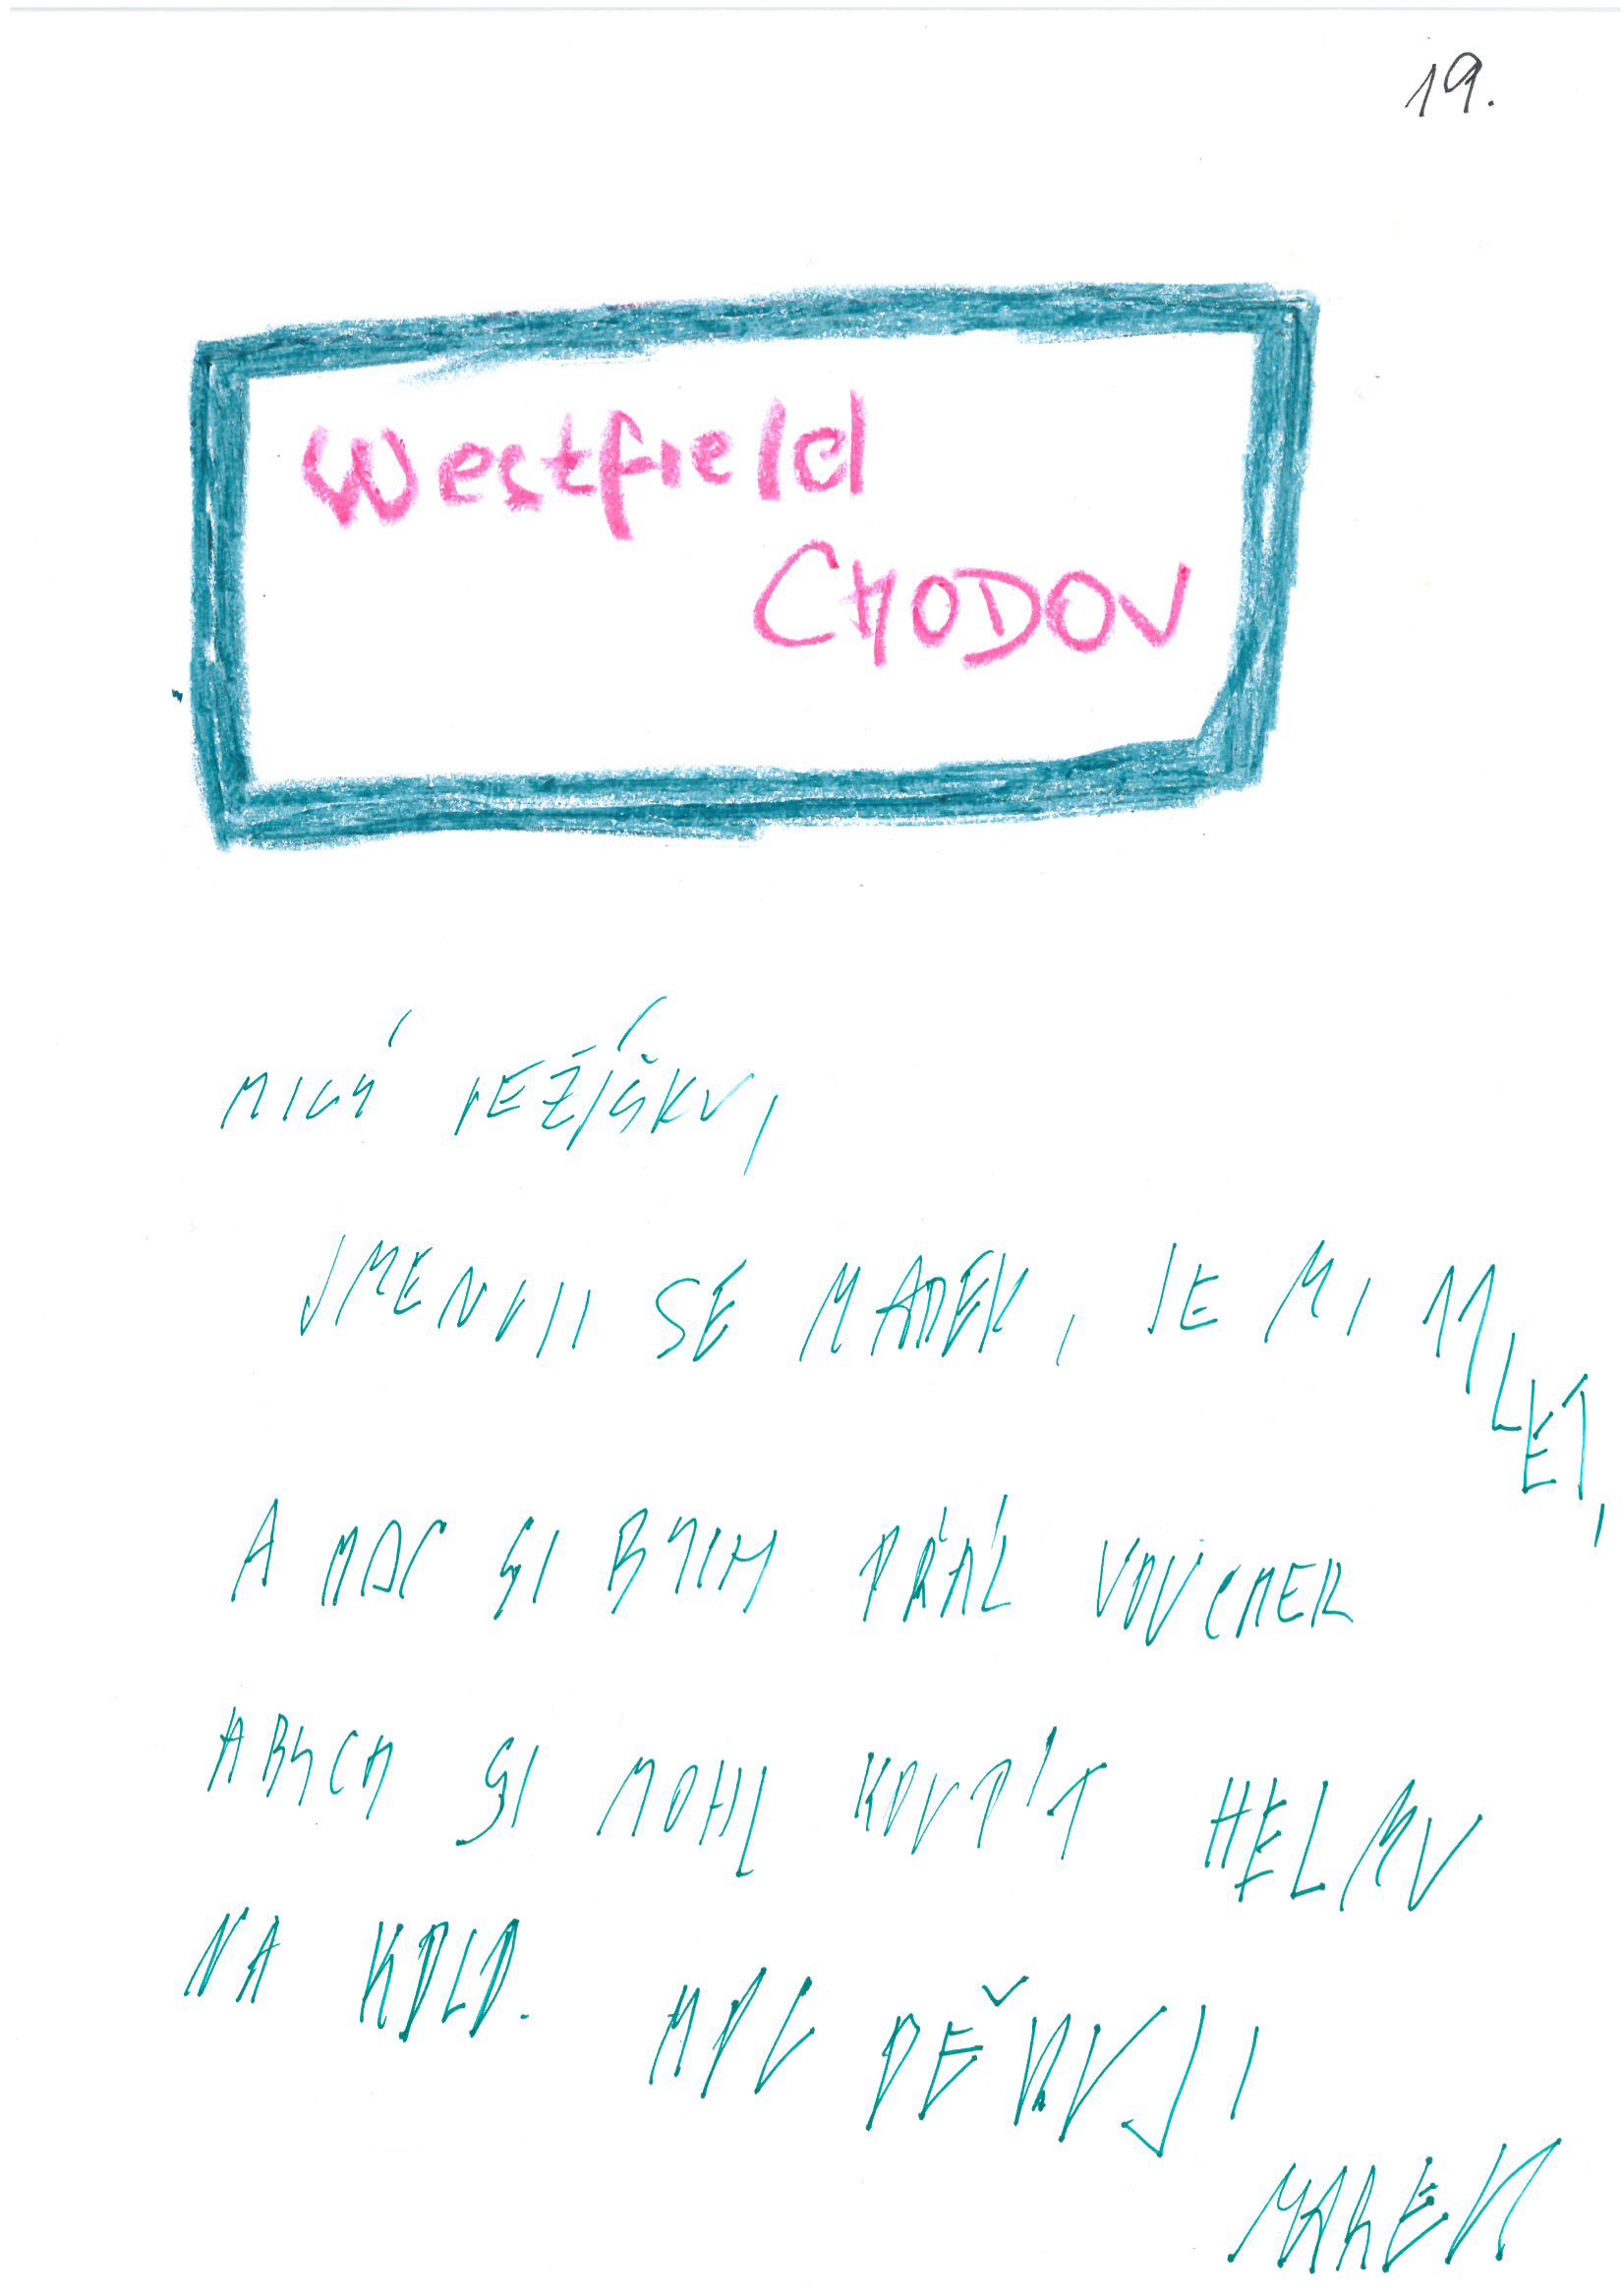 19.
Westfield
CHODOV
MILÝ JEŽÍŠKU,
JMENUJI SE MAREK, JE MI 11 LET,
A MOC SI BYCH PŘÁL VOUCHER
ABYCH SI MOHL KOUPÍT HELMU
NA KOLO. MOC DĚKUJI
MAREK